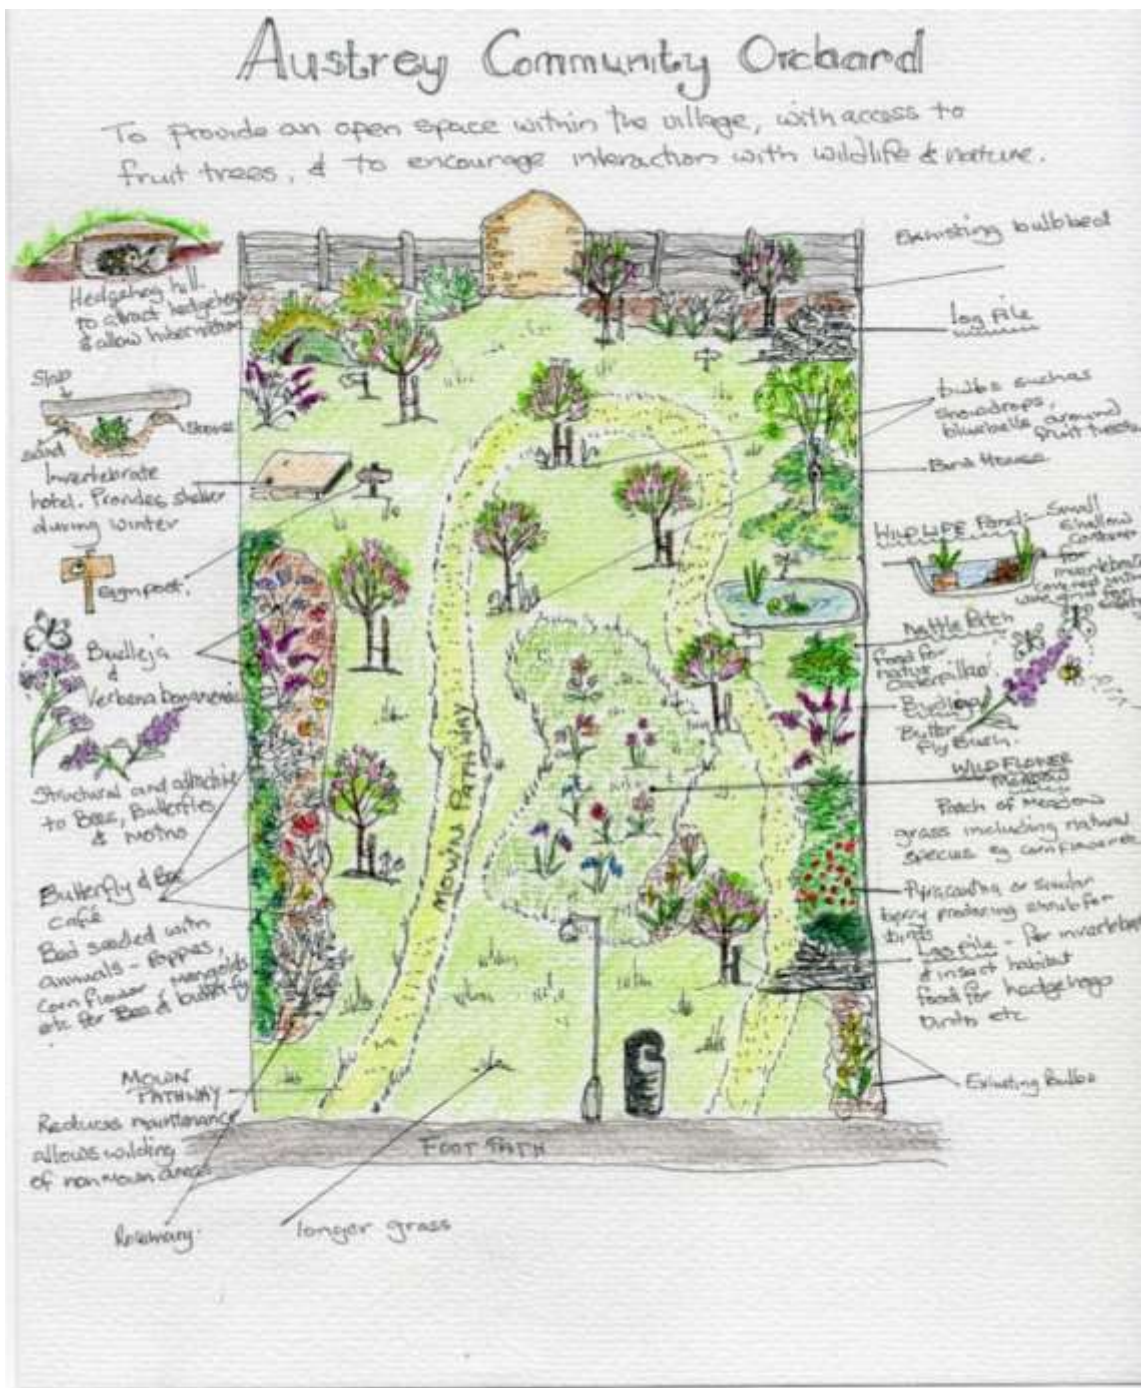 Austrey Community Orchard
To provide an open space within the village, with access to
fruit trees, & to encourage interaction with wildlife & nature.
Hedgehog hill
to atract hedgehog
& allow hibernation
Slab
sand
Stone
Invertebrate
hotel. Provides shelter
during winter
Signpost.
Budleja
&
Verbena
Structural and attractive
to Bees, Butterflies
&
Butterfly & Bee
café
Bed seeded with
annuals - Poppies,
Corn flower, Marigolds
etc for Bee & butterfly
MOWN
PATHWAY
Reduces maintenance
allows wilding
of non mown areas
Rosemary.
longer grass
MOWN PATHWAY
FOOT PATH
Exhisting bulb bed
Log Pile
bulbs such as
snowdrops,
bluebells around
fruit trees
Bird House
WILDLIFE Pond -
Small
shallow
container
for
invertebrates
covered
wire
Nettle Patch
Food for
Caterpillar
Budleja
Butter
fly Bush.
WILD FLOWER
MEADOW
Patch of Meadow
grass including natural
species eg cornflower etc
Pyracantha or similar
berry producing shrub for
birds
Log Pile - For invertebrate
& insect habitat
food for hedgehogs
birds etc
Exhisting Bulbs